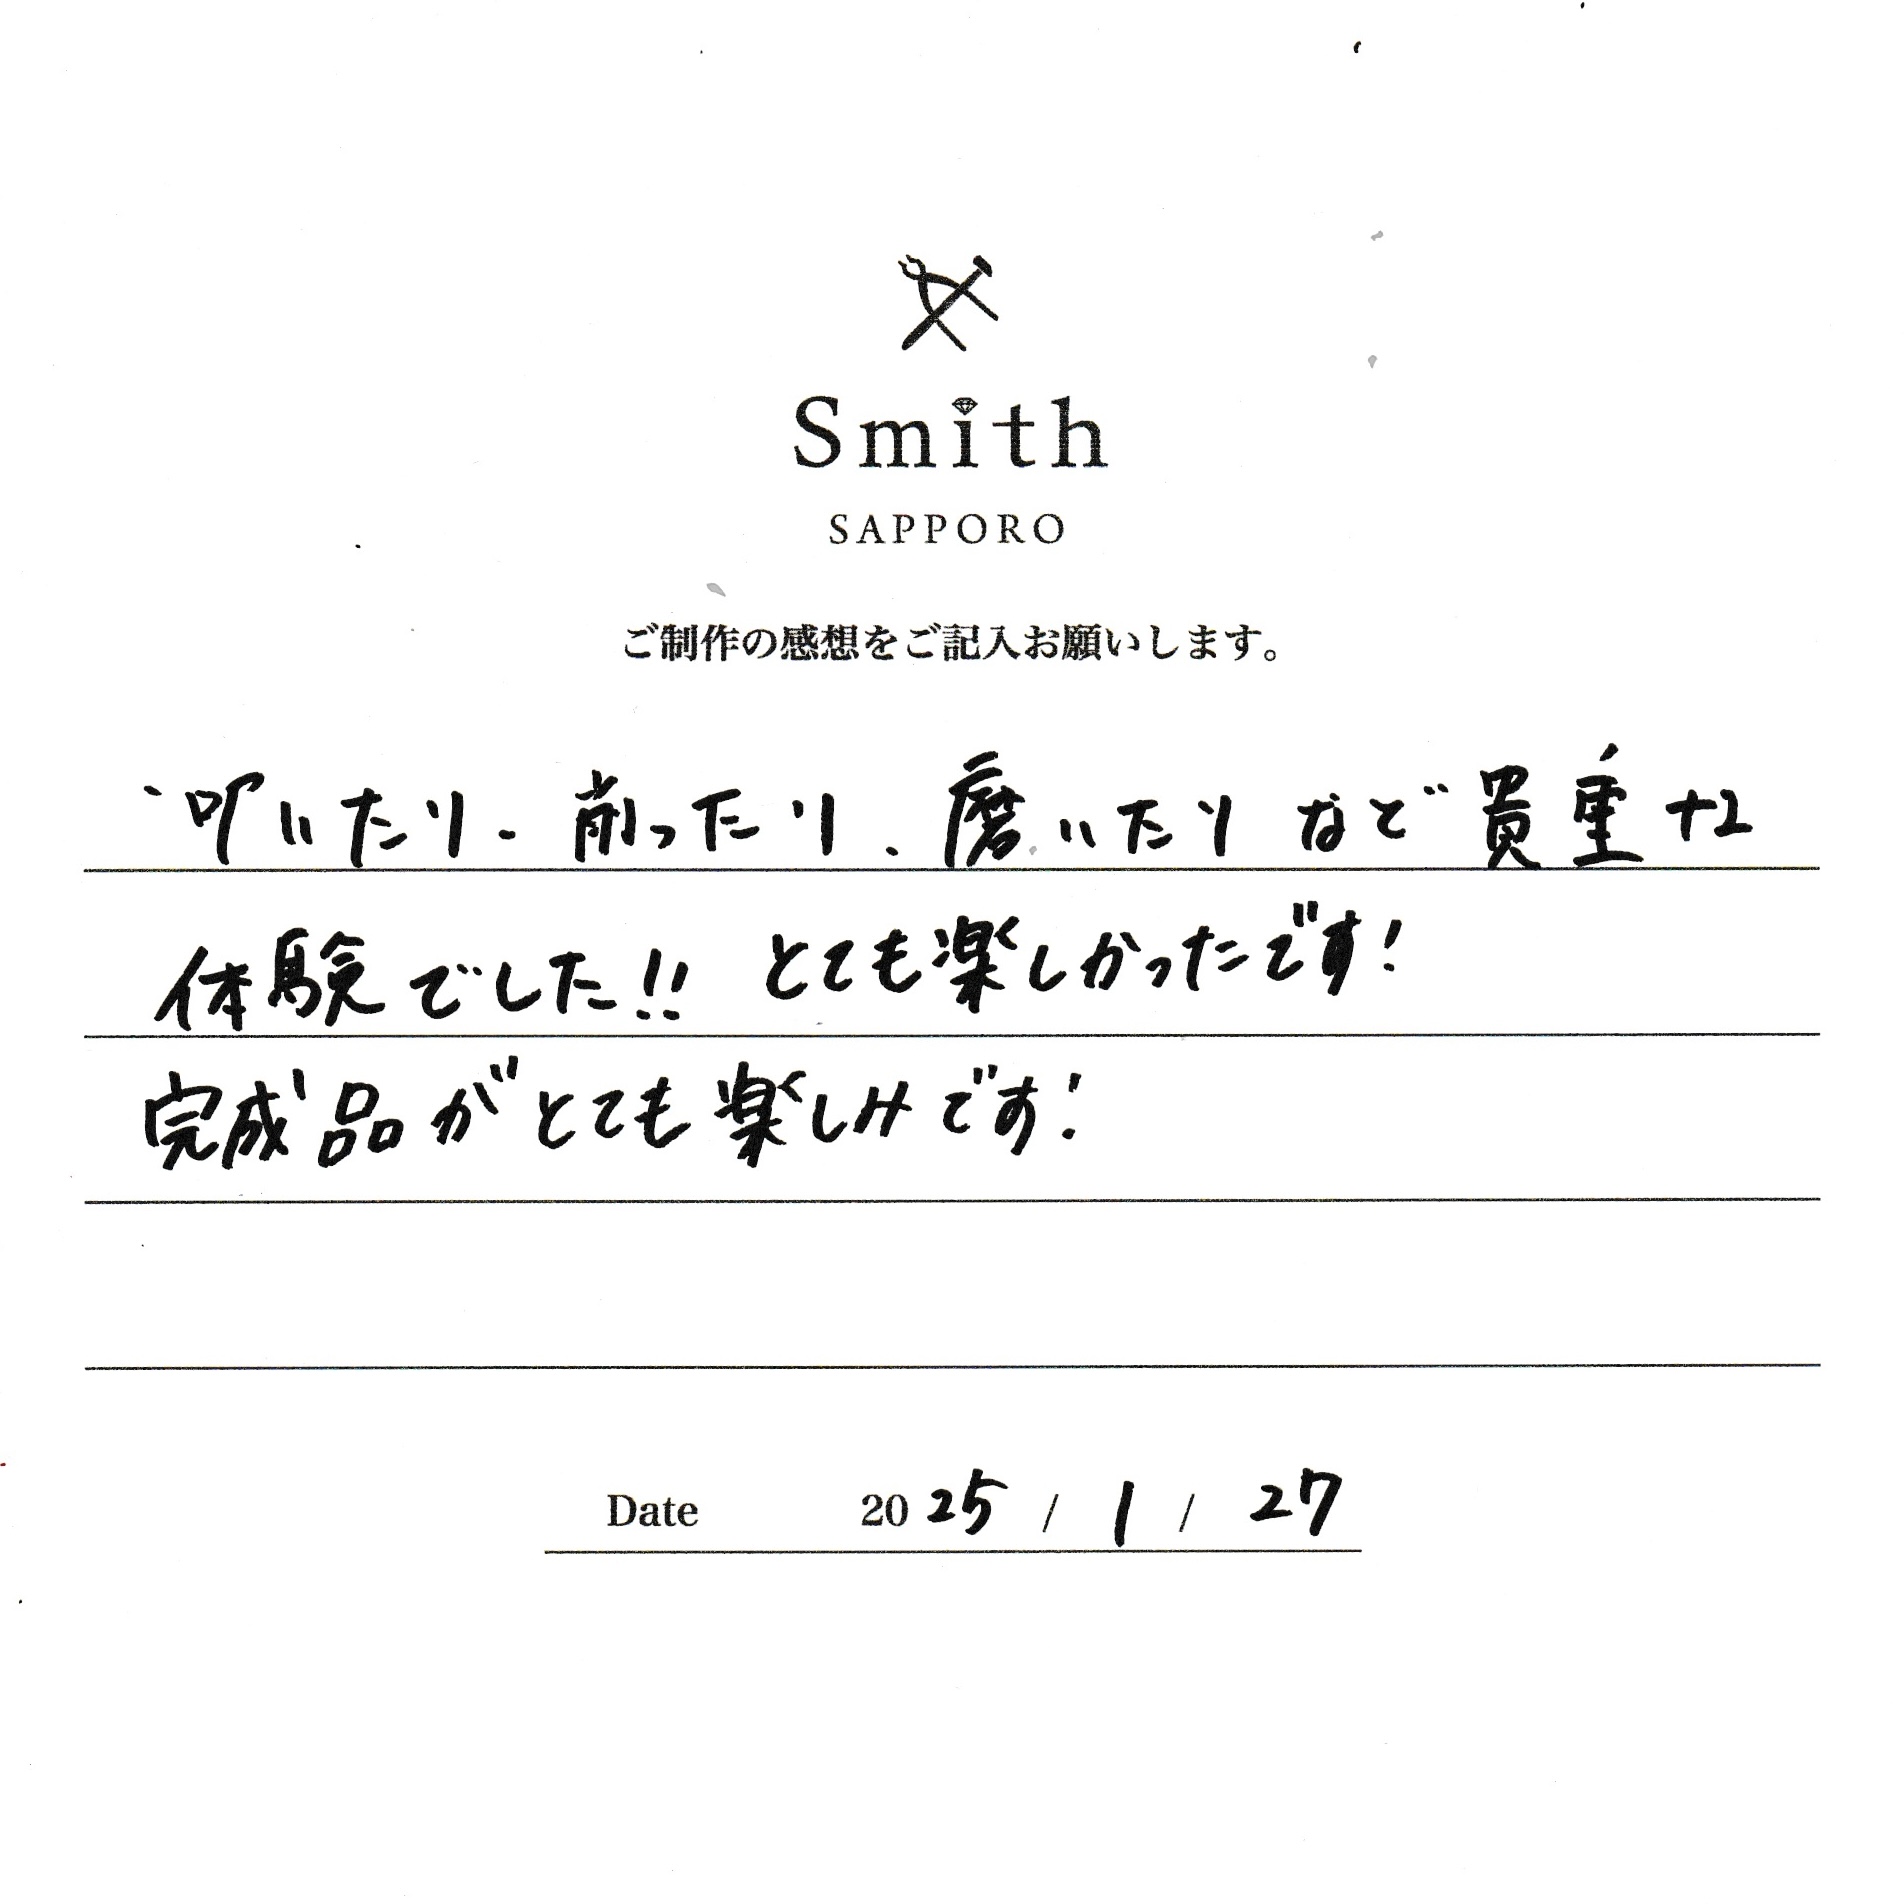 Smith
SAPPORO
ご制作の感想をご記入お願いします。
叩いたり、削ったり、磨いたりなど貴重な
体験でした!! とても楽しかったです!
完成品がとても楽しみです!
Date 2025 / 1 / 27